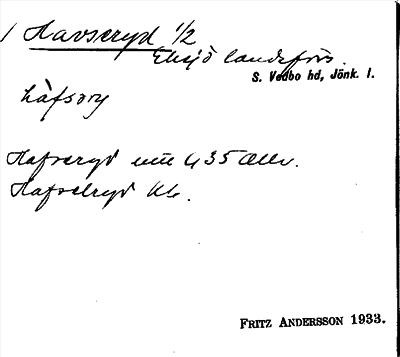 1 Havseryd 1/2
Eksjö landsförs.
S. Vedbo hd, Jönk. l.
håfsəry
Hafseryd 435
Hafselryd
FRITZ ANDERSSON 1933.